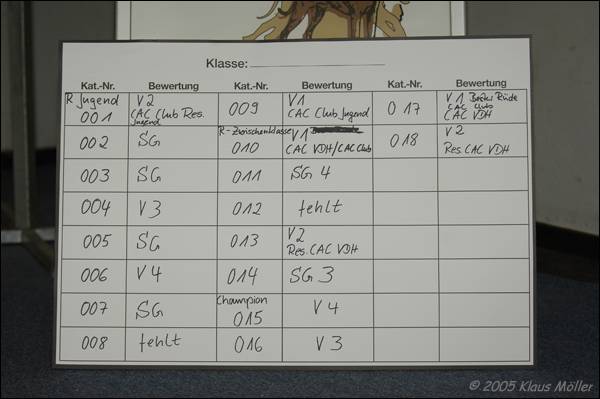 Klasse:
Kat.-Nr. Bewertung Kat.-Nr. Bewertung Kat.-Nr. Bewertung
R Jugend
001
V2
CAC Club Res.
Jugend
009
V1
CAC Club Jugend
017
V1 Bester Rüde
CAC Club
CAC VDH
002
SG
R-Zwischenklasse
010
V1
CAC VDH/CAC Club
018
V2
Res. CAC VDH
003
SG
011
SG 4
004
V3
012
fehlt
005
SG
013
V2
Res. CAC VDH
006
V4
014
SG 3
007
SG
Champion
015
V4
008
fehlt
016
V3
© 2005 Klaus Möller